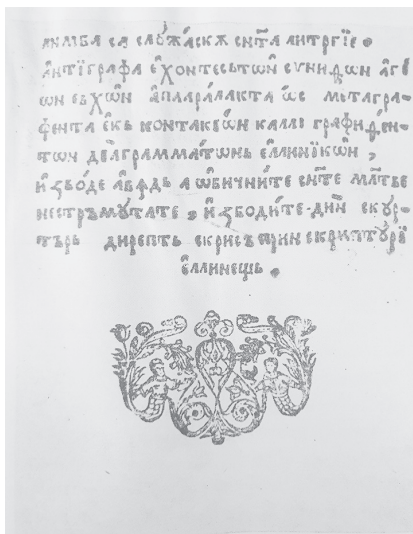 ан҆миⷩ҇ба са слꙋ́жаскѫ сн҃та литꙋргїе •
а҆нтїграфа е҆́хонтесьтѡ̑н сѵнидѡн а҆гѵ
ѡ̑н еѵхѡ̑н а҆паралакта ѡ҆с метагра-
фента е҆кь контакѵѡ̑н каллїграфиѳен-
тѡн дїаграмматѡнь елинїкѡ̑н ,
и҆зводе авѫдь а ѡбичните сн҃те мл҃тве
нестръмꙋтате , и҆зводите-дин скꙋр-
търь дирепть скрисъ прин скриптꙋрїи
е҆ллинешь •